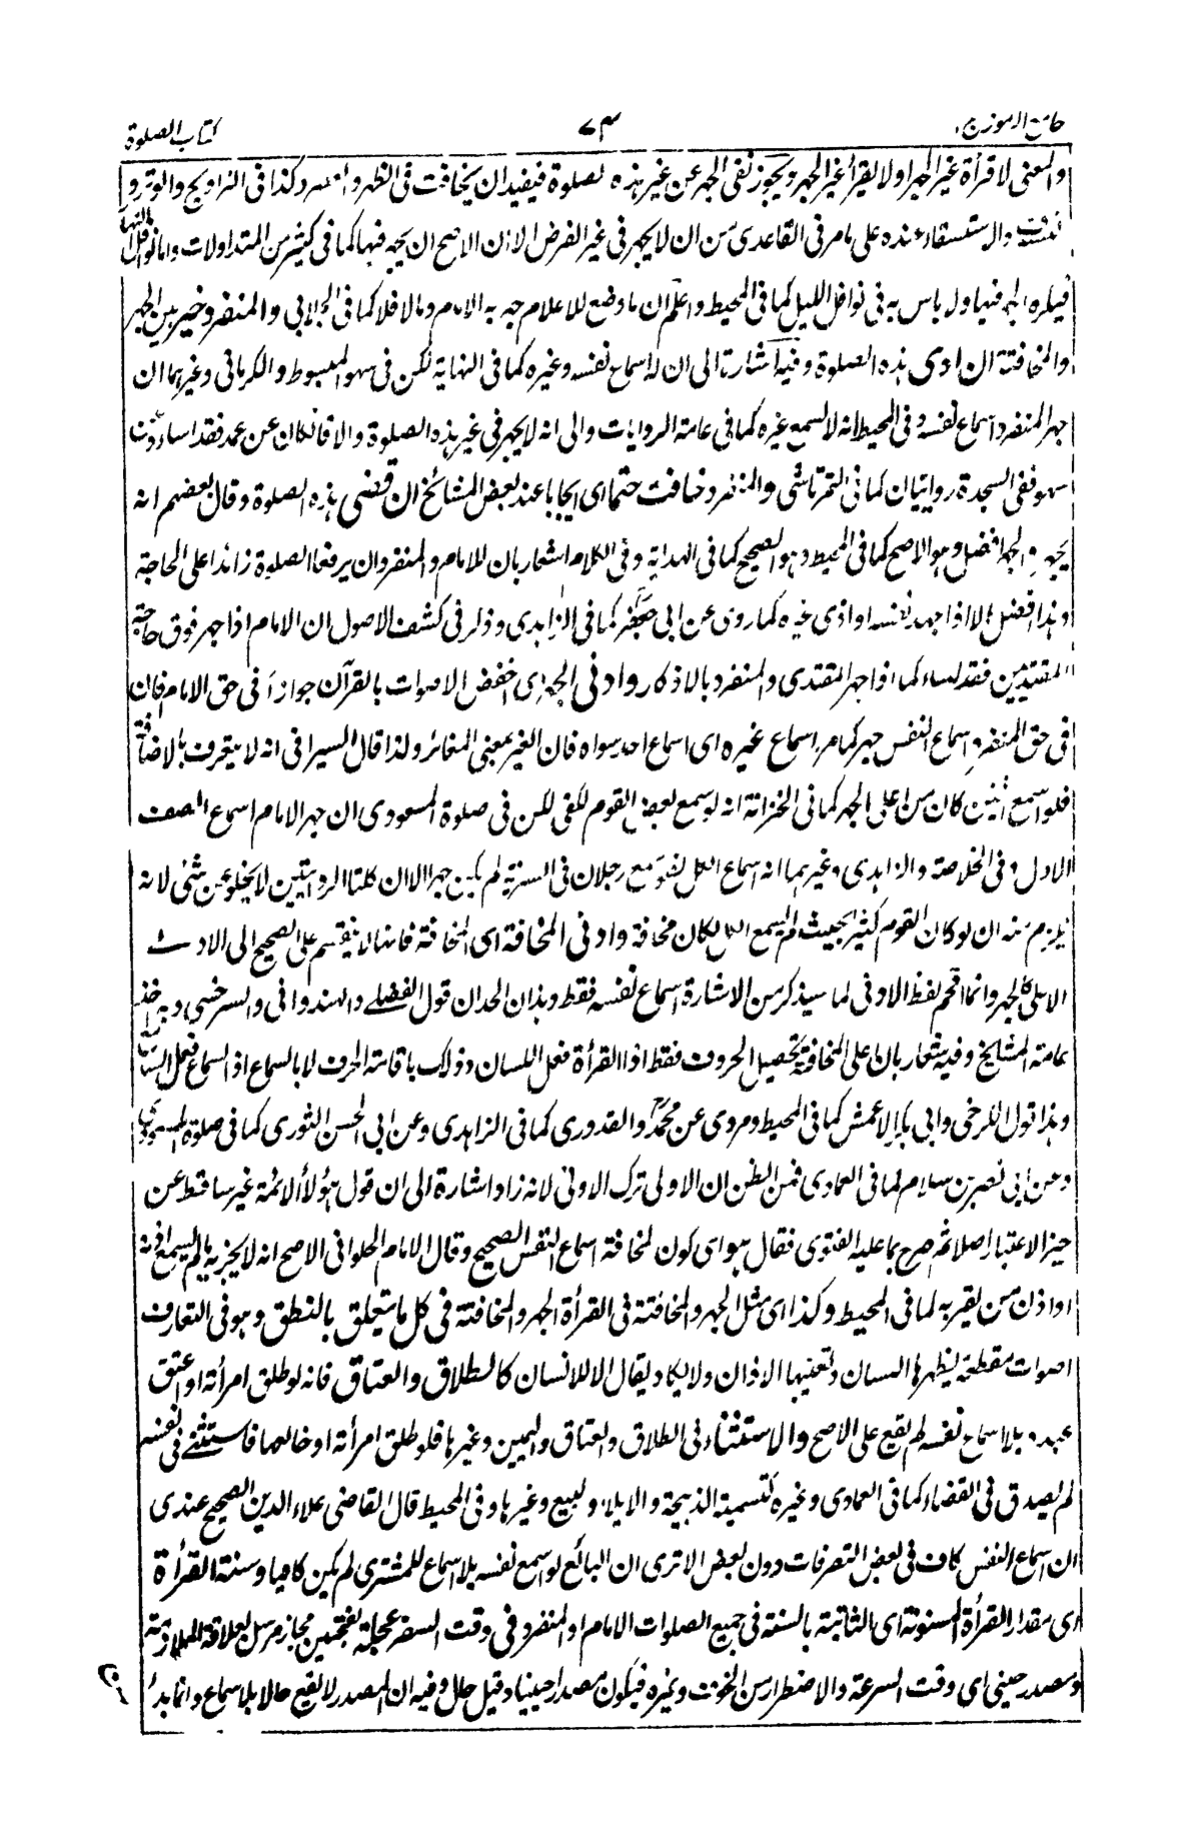 جامع الرموز ج ١ ٧٣ كتاب الصلوة
والمعنى لا قرأة غير الجهر او لا يقرأ غير الجهر ويجوز نفى الجهر عن غير هذه الصلوة فيفيد ان يخافت فى الظهر والعصر وكذا فى التراويح والوتر
والاستسقاء عنده على ما مر فى القاعدى من ان لا يجهر فى غير الفرض الا ان الاصح ان يجهر فيها كما فى كثير من المتداولات واما نوافل النهار
فيكره الجهر فيها ولا باس به فى نوافل الليل كما فى المحيط واعلم ان ما وضع للاعلام جهر به الامام وما لا فلا كما فى الجلابى والمنفرد خير بين الجهر
والمخافتة ان ادى هذه الصلوة وفيه اشارة الى ان له اسماع نفسه وغيره كما فى النهاية لكن فى سهو المبسوط والكرمانى وغيرهما ان
جهر المنفرد اسماع نفسه وفى المحيط انه لا يسمع غيره كما فى عامة الروايات والى انه لا يجهر فى غير هذه الصلوة والا فان كان عن عمد فقد اساء وان
سهو ففى السجدة روايتان كما فى التمرتاشى والمنفرد خافت حتما اى ايجابا عند بعض المشائخ ان قضى هذه الصلوة وقال بعضهم انه
يجهر والجهر افضل وهو الاصح كما فى المحيط وهو الصحيح كما فى الهداية وفى الكلام اشعار بان للامام والمنفرد ان يرفعا الصلوة زائدا على الحاجة
وهذا افضل الا اذا اجهد نفسه او اذى غيره كما روى عن ابى جعفر كما فى الزاهدى وذكر فى كشف الاصول ان الامام اذا جهر فوق حاجة
المقتدين فقد اساء كما اذا جهر المقتدى والمنفرد بالاذكار وادنى الجهر اى اخفض الاصوات بالقرآن جوازا فى حق الامام فان
فى حق المنفرد اسماع النفس جهر كما مر اسماع غيره اى اسماع احد سواه فان الغير بمعنى المغائر ولذا قال السيرافى انه لا يتعرف بالاضافة
فلو اسمع اثنين كان من اعلى الجهر كما فى الخزانة انه لو سمع بعض القوم لكفى لكن فى صلوة المسعودى ان جهر الامام اسماع الصف
الاول وفى الخلاصة والزاهدى وغيرهما انه اسماع الكل فلو سمع رجلان فى السرية لم يكن جهرا الا ان كلتا الروايتين لا يخلو عن شئ لانه
يلزم منه ان لو كان القوم كثيرا بحيث لم يسمع الكل لكان مخافة وادنى المخافتة اى المخافتة فانها لا ينقسم على الصحيح الى الادنى
الاعلى كالجهر وانما اقحم لفظ الادنى لما سيذكر من الاشارة اسماع نفسه فقط وهذان الحدان قول الفضلى والهندوانى والسرخسى وبه اخذ
عامة المشايخ وفيه اشعار بان اعلى المخافتة تحصيل الحروف فقط اذ القرأة فعل اللسان وذلك باقامة الحرف لا بالسماع اذ السماع فعل السامع
وهذا قول الكرخى وابى بكر الاعمش كما فى المحيط ومروى عن محمد والقدورى كما فى الزاهدى وعن ابى الحسن الثورى كما فى صلوة المسعودى
وعن ابى نصر بن سلام كما فى العمادى فمن الظن ان الاولى ترك الادنى لانه زاد اشارة الى ان قول هؤلاء الائمة غير ساقط عن
حيز الاعتبار اصلا ثم صرح بما عليه الفتوى فقال هو اى كون المخافتة اسماع النفس الصحيح وقال الامام الحلوانى الاصح انه لا يجزيه ما لم يسمع اذنه
او اذن من يقربه كما فى المحيط وكذا اى مثل الجهر والمخافتة فى القرأة الجهر والمخافتة فى كل ما يتعلق بالنطق وهو فى التعارف
اصوات مقطعة يظهرها اللسان وتعيها الاذان ولا يكاد يقال الا للانسان كالطلاق والعتاق فانه لو طلق امرأته او اعتق
عبده بلا اسماع نفسه لم يقع على الاصح والاستثناء فى الطلاق والعتاق واليمين وغيرها فلو طلق امرأته او خالعها فاستثنى فى نفسه
لم يصدق فى القضاء كما فى العمادى وغيره كتسمية الذبيحة والايلاء والبيع وغيرها وفى المحيط قال القاضى علاء الدين الصحيح عندى
ان اسماع النفس كاف فى بعض التصرفات دون بعض الا ترى ان البائع لو اسمع نفسه بلا اسماع للمشترى لم يكن كافيا وسنة القرأة
اى مقدار القرأة المسنونة اى الثابتة بالسنة فى جميع الصلوات الامام او المنفرد فى وقت السفر عجلة بفتحتين مجاز مرسل لعلاقة الملازمة
ومصدر حينى اى وقت السرعة والاضطرار من الخوف وغيره فيكون مصدرا حينيا وقيل حال وفيه ان المصدر لا يقع حالا بلا سماع وانما بدأ